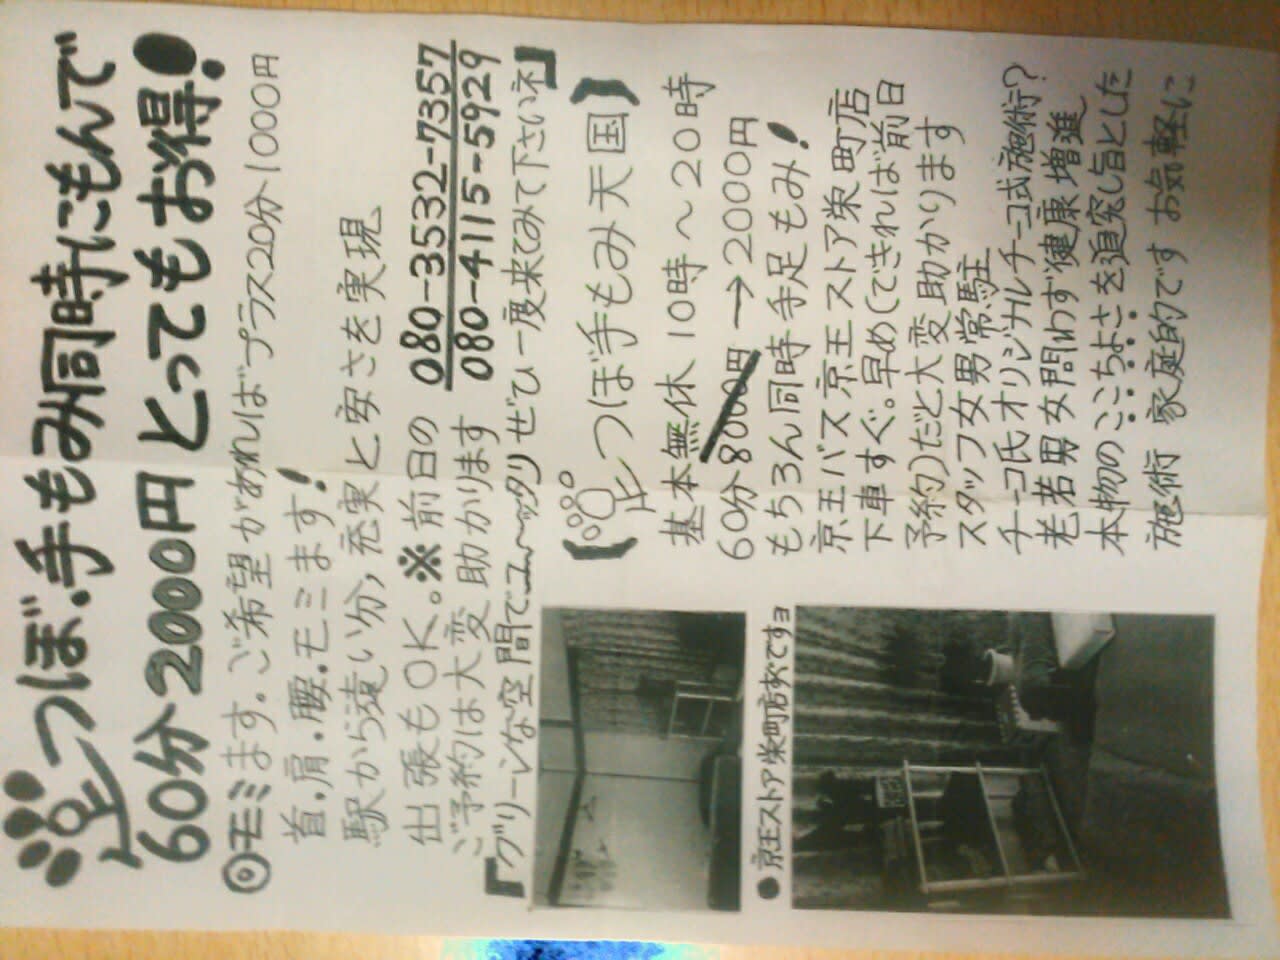 足つぼ・手もみ同時にもんで
60分2000円 とってもお得!
◎モミます。ご希望があればプラス20分1000円
首・肩・腰・モミます!
駅から遠い分,充実と安さを実現
出張もOK。※前日の 080-3532-7357
ご予約は大変助かります 080-4115-5929
「グリーンな空間でユ〜ッタリぜひ一度来てみて下さいネ」
(足つぼ手もみ天国)
基本無休 10時〜20時
60分8000円→2000円
もちろん同時手足もみ!
京王バス京王ストア栄町店
下車すぐ。早め(できれば前日
予約)だと大変助かります
スタッフ女男常駐
チーコ氏オリジナルチーコ式施術?
老若男女問わず健康増進
本物のここちよさを追究し旨とした
施術 家庭的です お気軽に
●京王ストア栄町店欠ですヨ